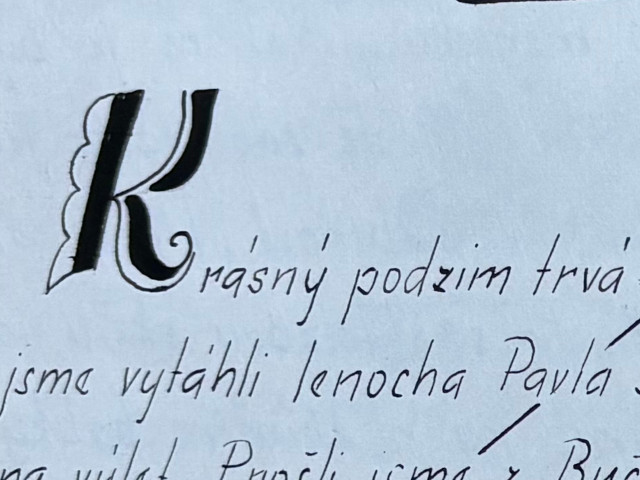 Krásný podzim trvá
jsme vytáhli lenocha Pavla
na výlet. Prošli jsme z